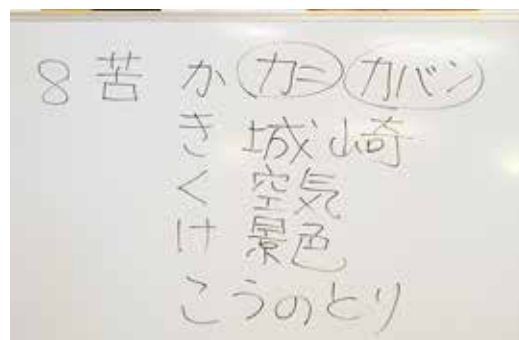 8 苦 か カニ カバン
き 城崎
く 空気
け 景色
こうのとり